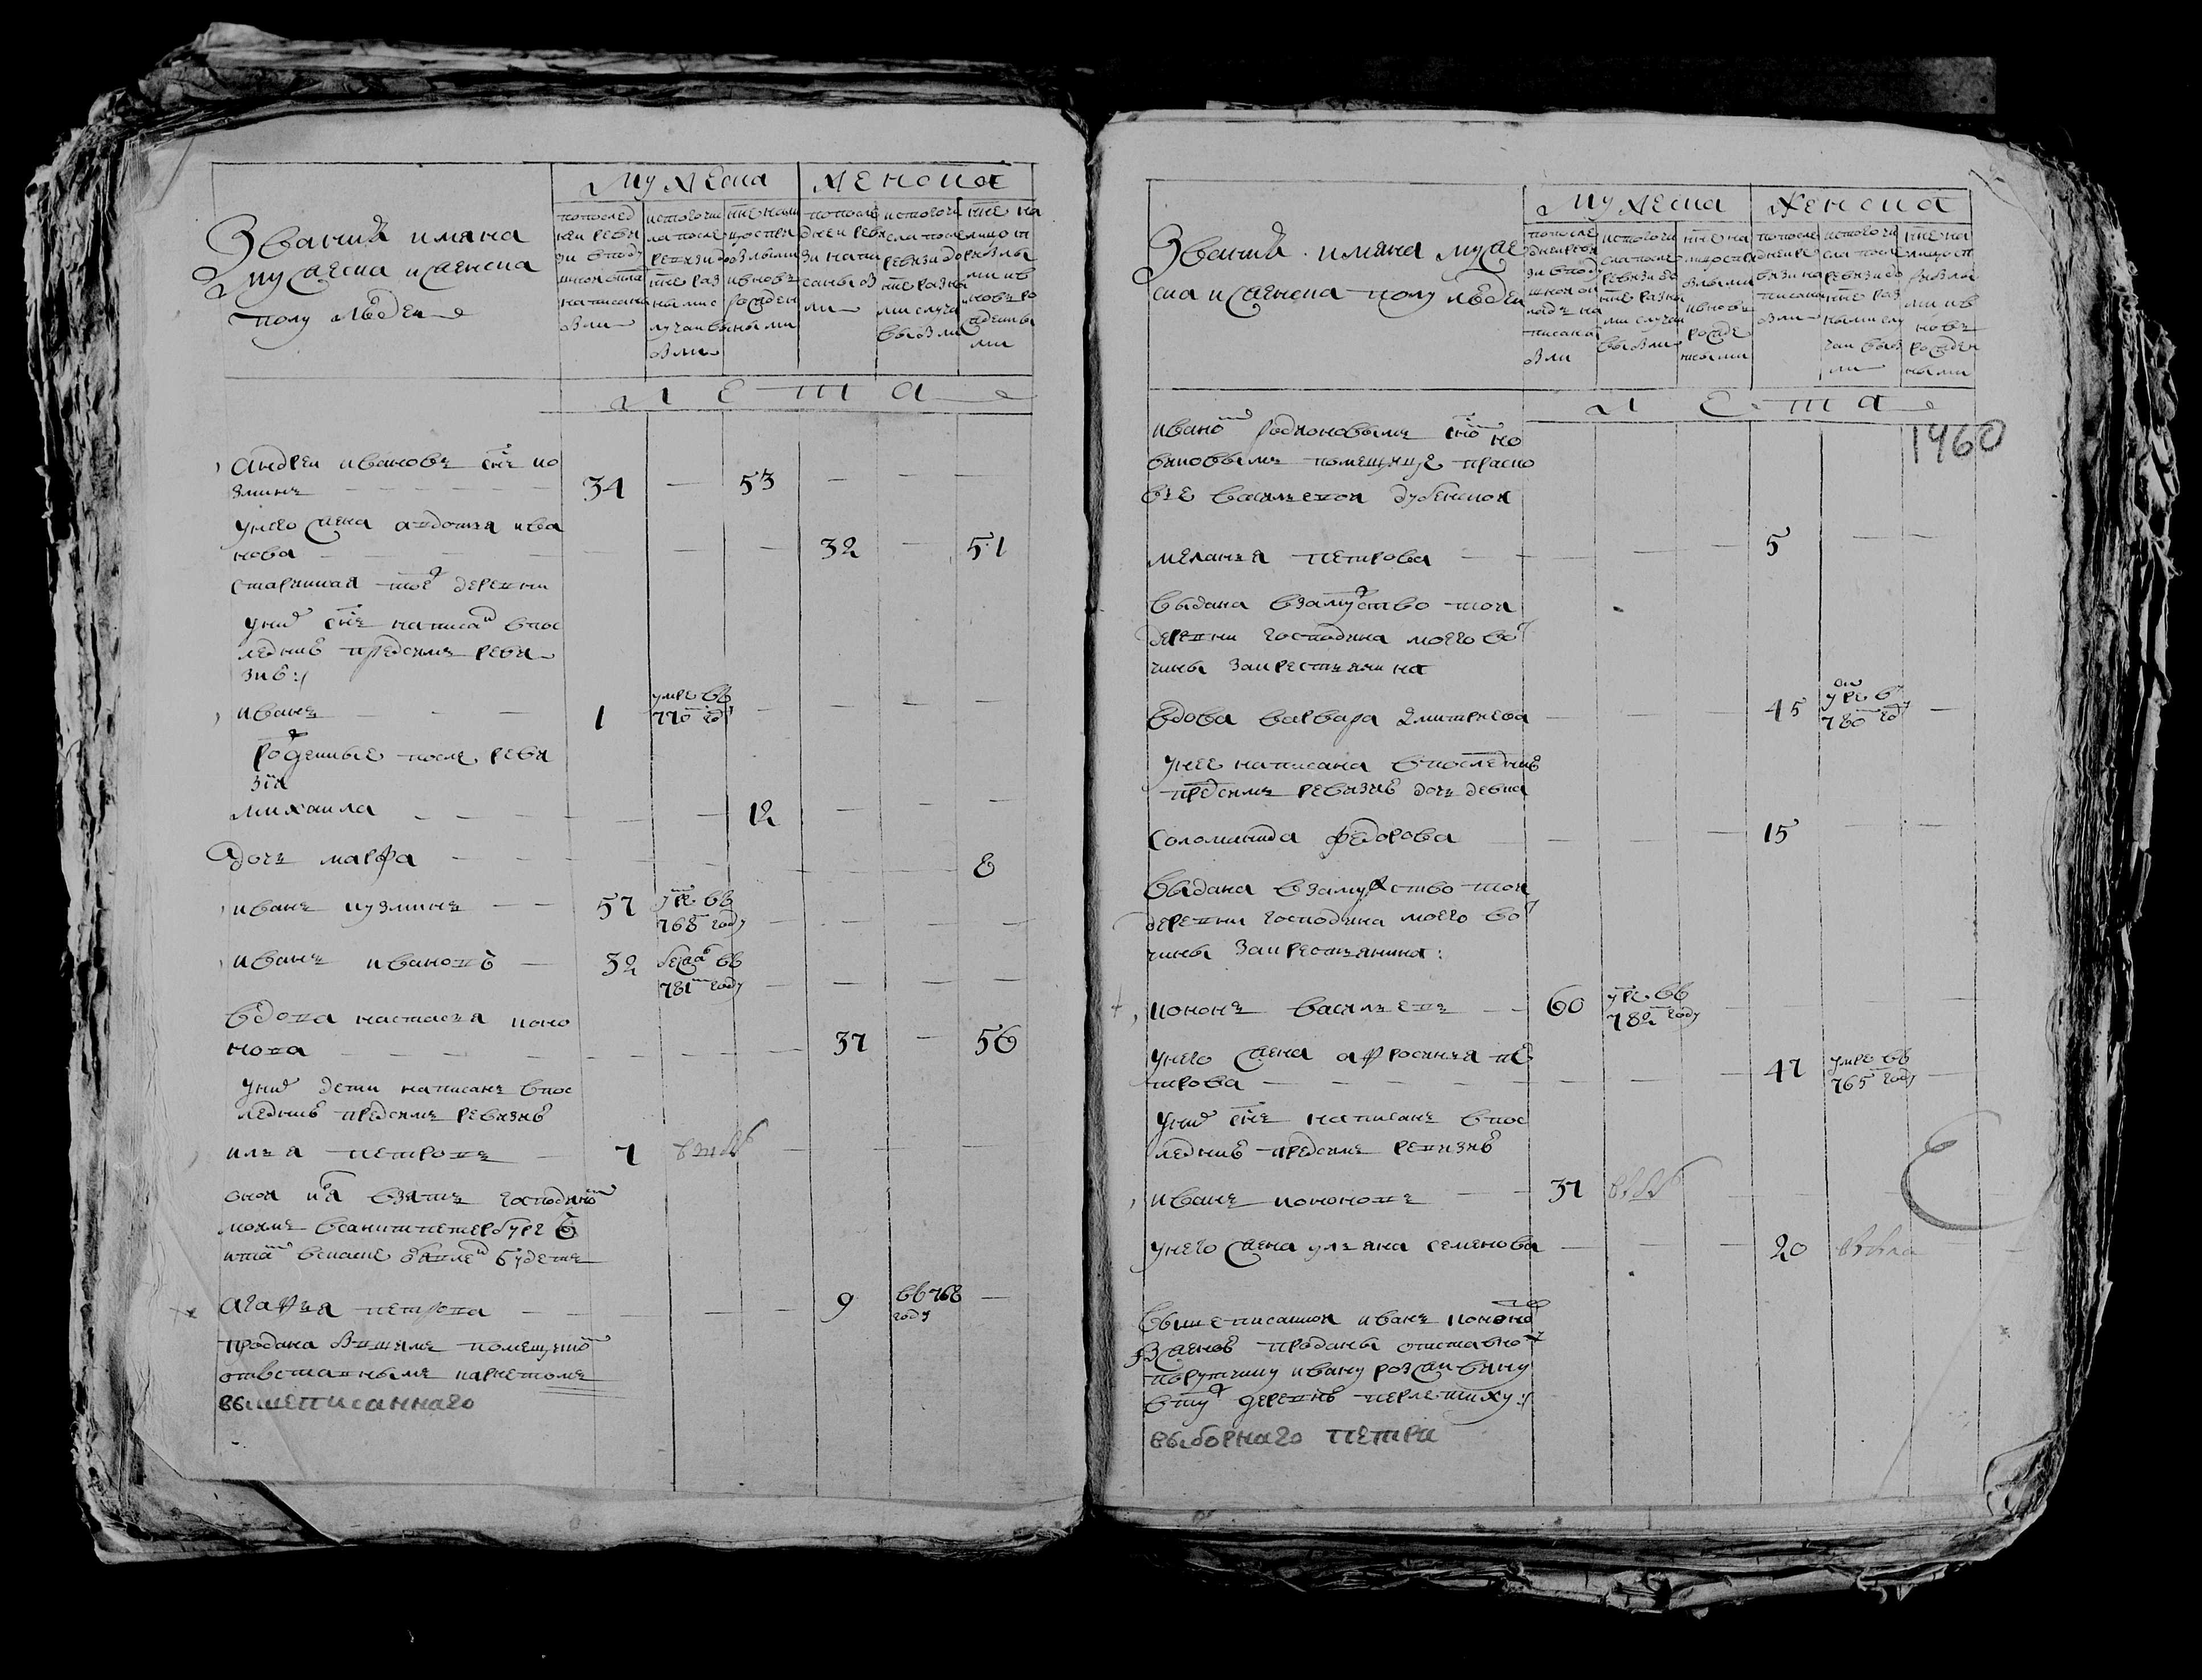 Званий имяна
мужеска и женска
полу людей
мужеска
женска
по послед
ней реви
зи в поду
шной окла
написано
были
ис того чи
ла после
ревизи до
ныне раз
ными с
лучаи вы
были
ныне на ли
цо с при
былыми
и вновь
рожден
ными
по после
дней реви
зи напи
саны бы
ли
ис того чи
сла после
ревизи до
ныне разны
ми случаи
выбыли
ныне на
лицо с п
рибылы
ми и в
новь ро
жденны
ми
лета
андреи ивановъ снъ ко
зминъ 34 53
у него жена авдотья ива
нова 32 51
старинная тоеж деревни
у них снъ написан в пос
леднию пред симъ реви
зию:/
иванъ 1 умре въ
770м году
рожденные после реви
зiи
михаила 12
дочь марфа 8
иванъ кузминъ 57 умре въ
768м году
иванъ ивановъ 32 бежал въ
781м году
вдова настасья коно
нова 37 56
у них дети написанъ в пос
леднию пред симъ ревизию
илья петровъ 7
оной илья взятъ господином
моимъ в санктпетербургъ
и там в скаске объявлен будетъ
агафья петрова 9 въ 768
году
продана бывшимъ помещиком
отставнымъ
вышеписаннаго
Званий имяна муже
ска и женска полу людей
мужеска
женска
по после
дней реви
зи в поду
шной ок
ладъ на
писано
были
ис того чи
сла после
ревизи до
ныне разны
ми случаи
выбыли
ныне на
лицо с при
былыми
и вновь
рожде
нными
по после
дней ре
визи на
писаны
были
ис того чи
сла после
ревизи до
ныне раз
ными слу
чаи выбы
ли
ныне на
лицо с п
рибылы
ми и в
новь
рожден
ными
лета
1460
иваном родионовымъ сном но
виковымъ помещице праско
вье васильевой дубенской
меланья петрова 5
выдана в замужство той
деревни господина моего вот
чины за крестьянина
вдова варвара дмитриева 45 умре в
780 году
у нее написана в последнию
пред симъ ревизию дочь девка
соломанида федорова 15
выдана в замужство той
деревни господина моего вот
чины за крестьянина:
кононъ васильевъ 60 умре въ
782м году
у него жена афросинья пе
трова 47 умре въ
765м году
у них снъ написанъ в пос
леднию пред симъ ревизию
иванъ кононовъ 37
у него жена ульяна семенова 20
вышеписанной иванъ кононов
з женою проданы отставному
порутчику ивану
в ту ж деревню перлетиху:/
выборнаго петра